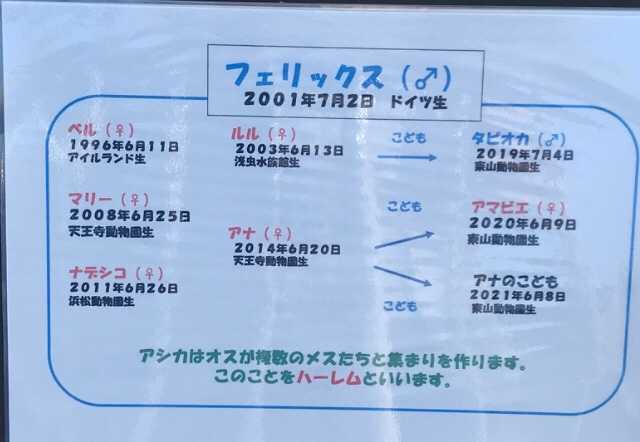 フェリックス（♂）
2001年7月2日 ドイツ生
ベル（♀）
1996年6月11日
アイルランド生
マリー（♀）
2008年6月25日
天王寺動物園生
ナデシコ（♀）
2011年6月26日
浜松動物園生
ルル（♀）
2003年6月13日
浅虫水族館生
アナ（♀）
2014年6月20日
天王寺動物園生
こども
こども
こども
タピオカ（♂）
2019年7月4日
東山動物園生
アマビエ（♀）
2020年6月9日
東山動物園生
アナのこども
2021年6月8日
東山動物園生
アシカはオスが複数のメスたちと集まりを作ります。
このことをハーレムといいます。